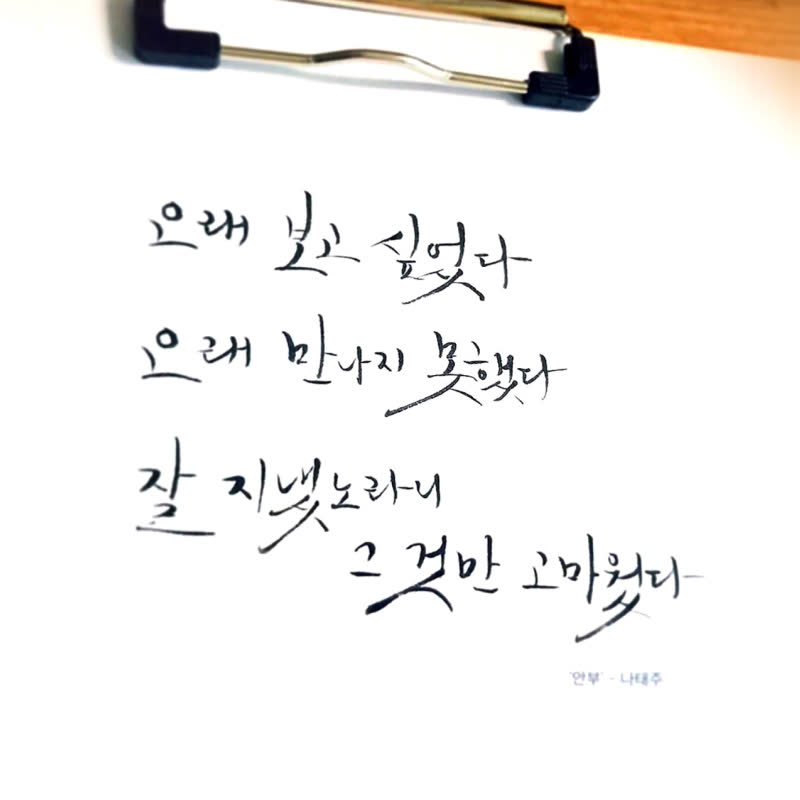 오래 보고 싶었다
오래 만나지 못했다
잘 지냈노라니
그것만 고마웠다
'안부' - 나태주